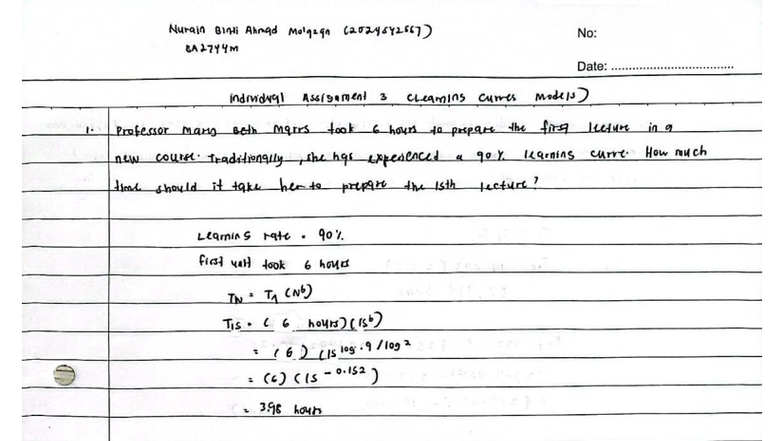 Nurain Binti Ahmad Molqzan (2024542667)
BA2744M
No:
Date: ..................................
Individual Assignment 3 (Learning Curves Models)
1. Professor Mary Beth Marrs took 6 hours to prepare the first lecture in a
new course. Traditionally, she has experienced a 90% learning curve. How much
time should it take her to prepare the 15th lecture?
Learning rate = 90%
First unit took 6 hours
TN = T1 (N^b)
T15 = (6 hours)(15^b)
= (6) (15^log .9/log 2)
= (6) (15^-0.152)
= 3.98 hours